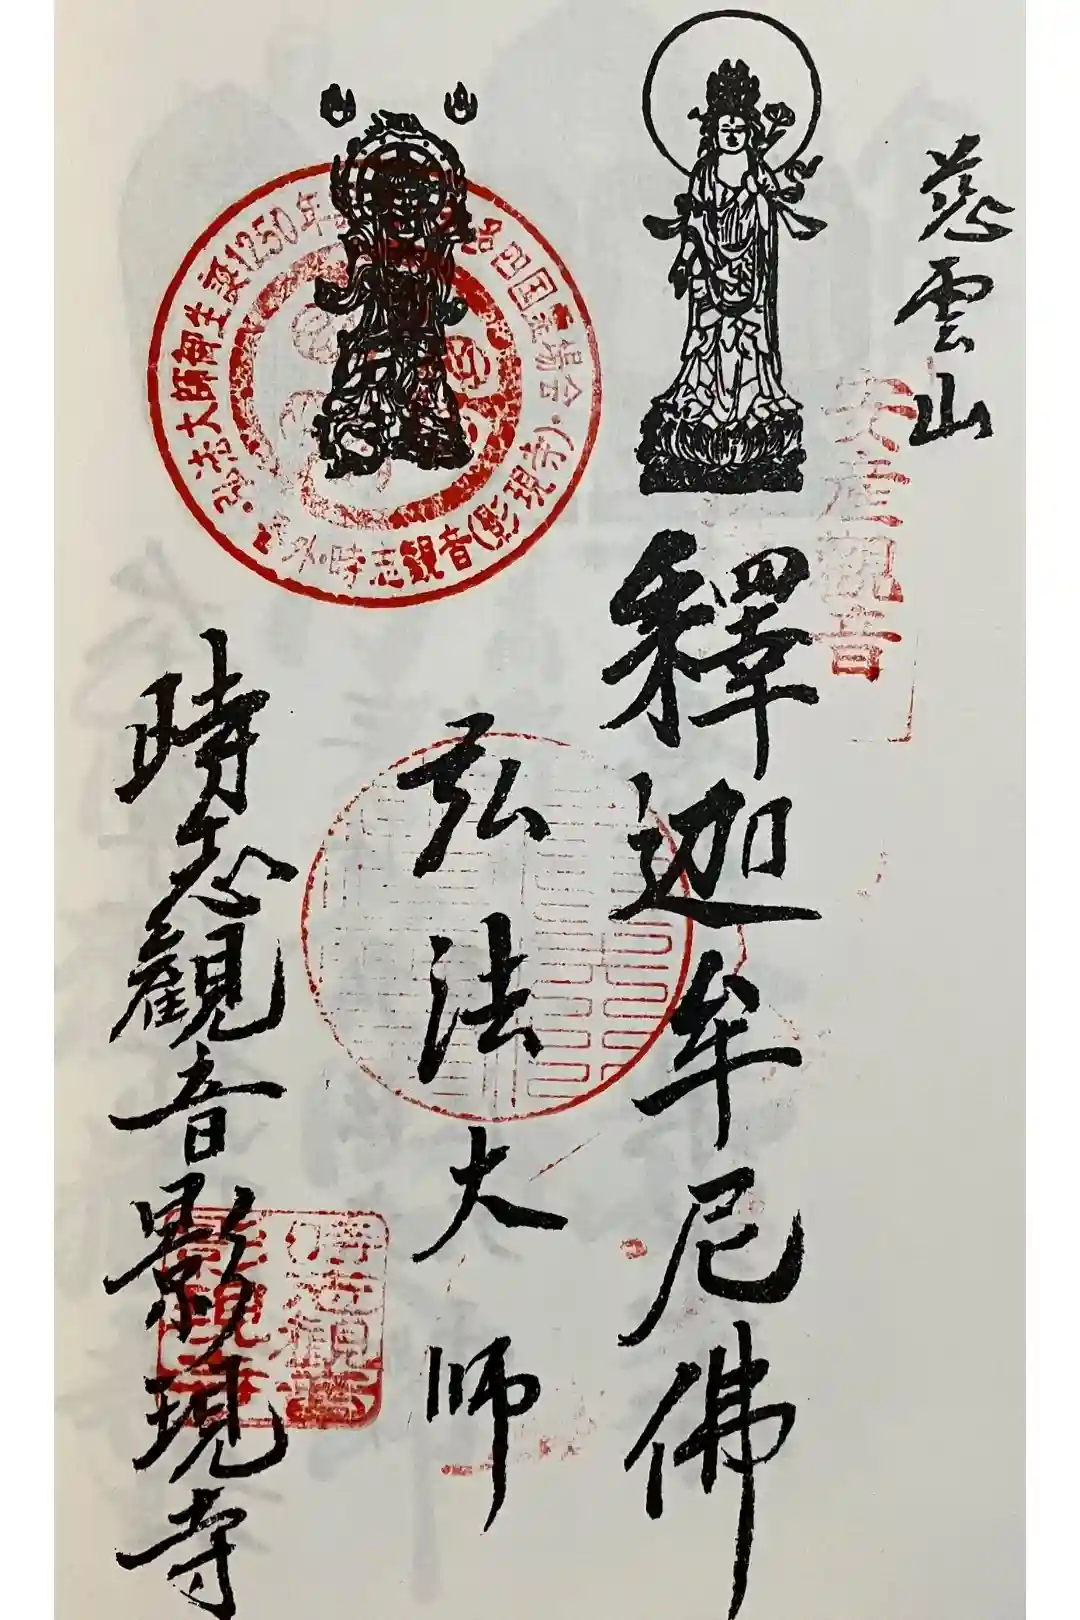 慈雲山
安産観音
釋迦牟尼佛
弘法大師
・弘法大師御生誕1250年
四国霊場会・
外・時志観音(影現寺)
時志観音影現寺
時志観音
影現寺